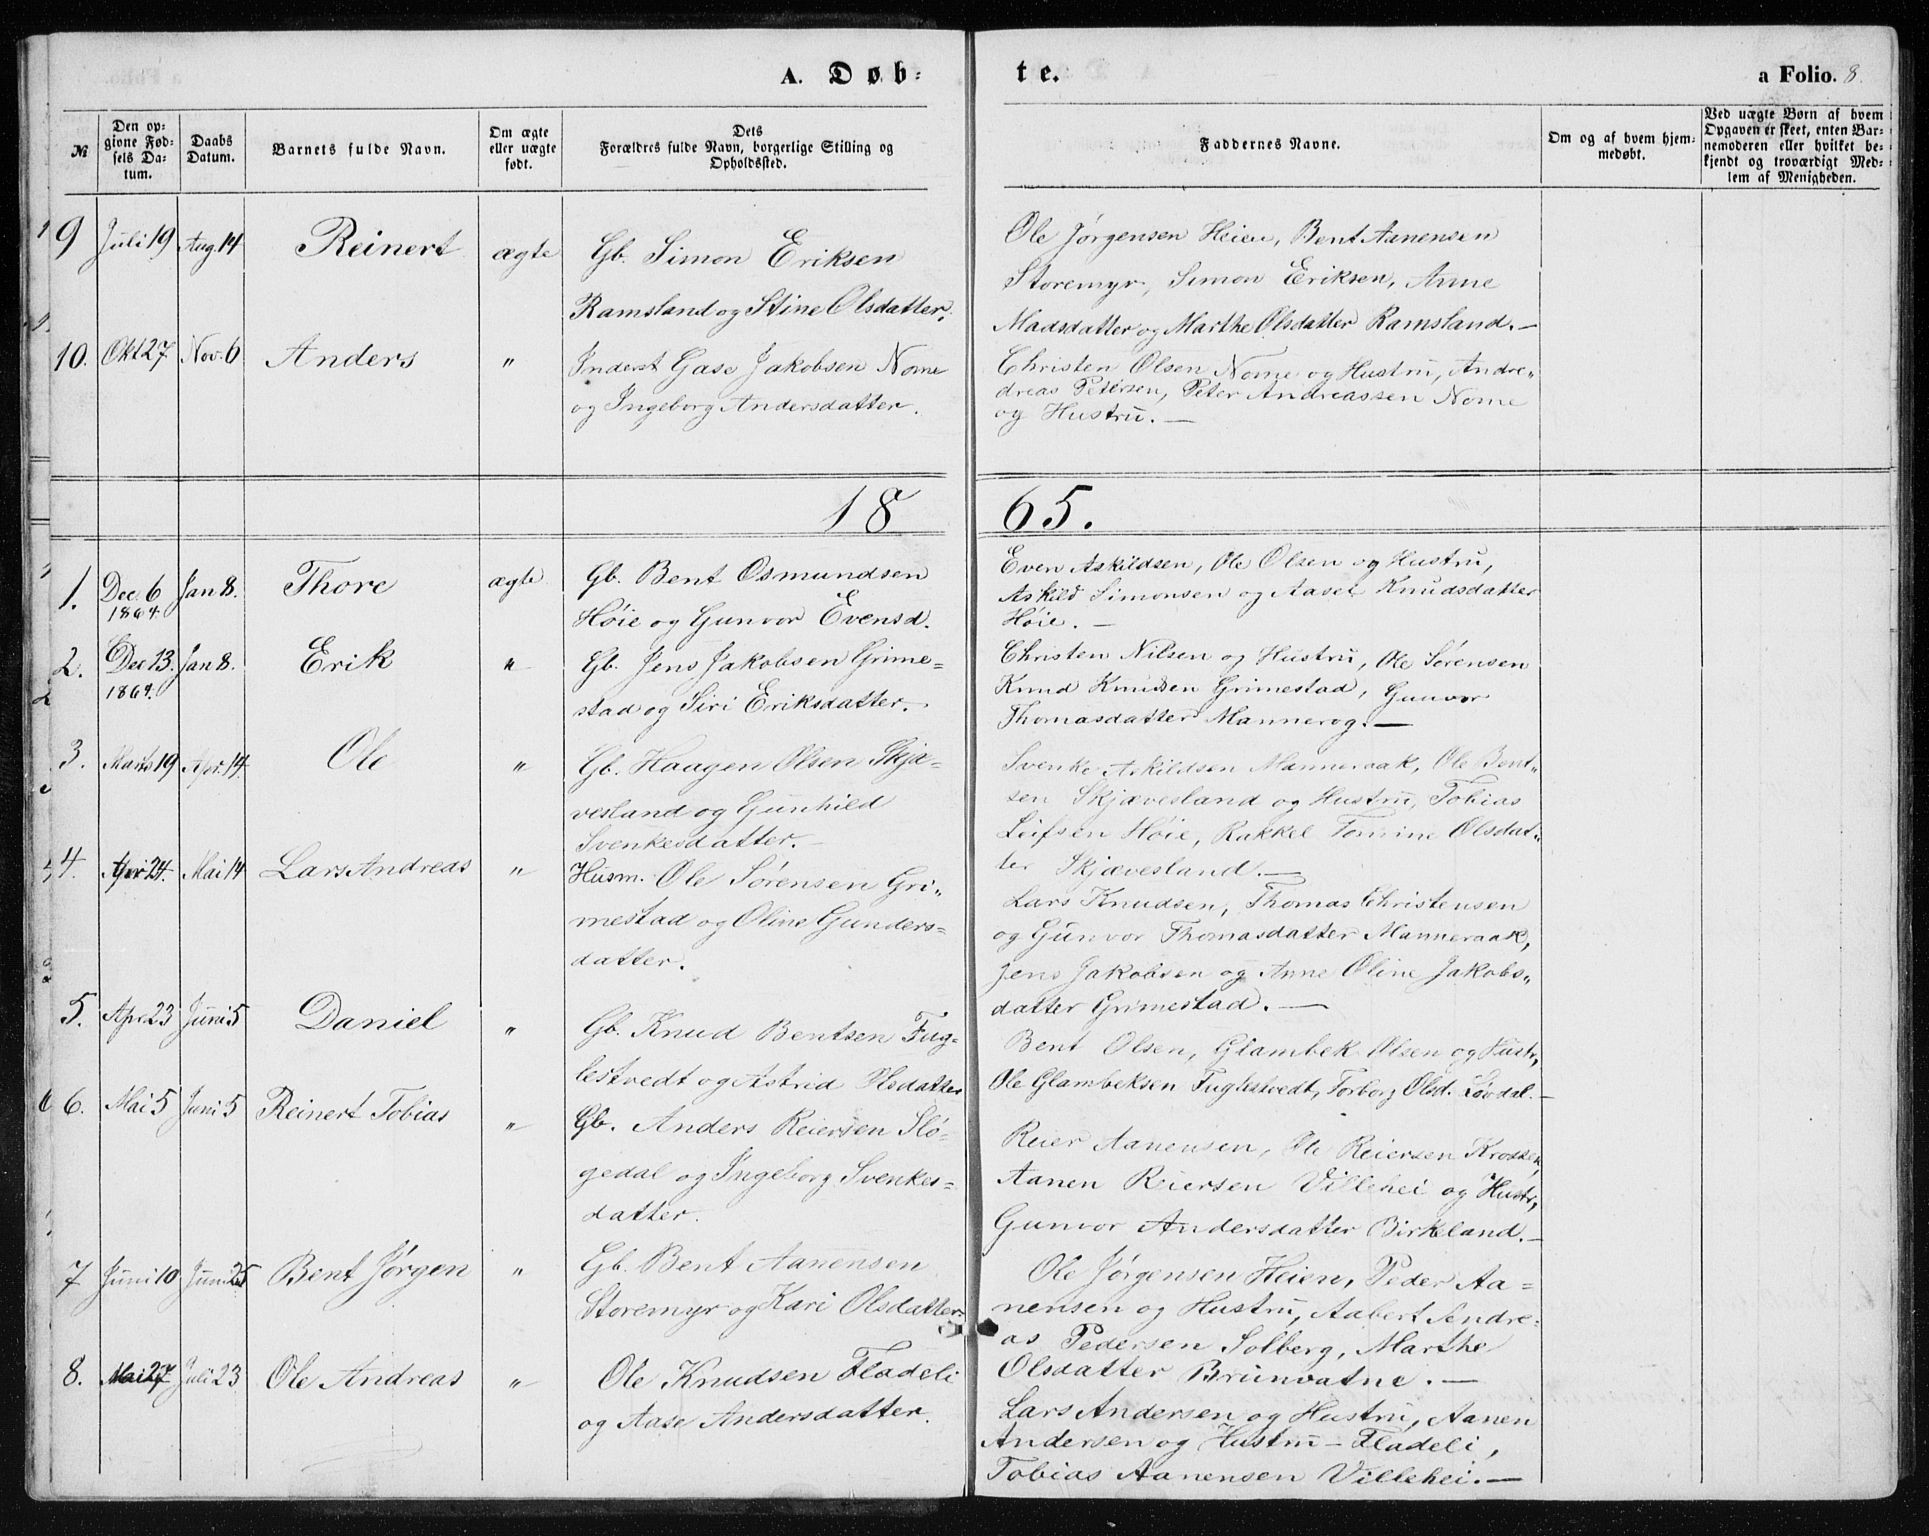 A. Døb-
te.
a Folio. 8.
№
Den op-
givne Fød-
sels Da-
tum.
Daabs
Datum.
Barnets fulde Navn.
Om ægte
eller uægte
født.
Dets
Forældres fulde Navn, borgerlige Stilling og
Opholdssted.
Faddernes Navne.
Om og af hvem hjem-
medøbt.
Ved uægte Børn af hvem
Opgaven er skeet, enten Bar-
nemoderen eller hvilket be-
kjendt og troværdigt Med-
lem af Menigheden.
9 Juli 19 Aug. 14 Reinert ægte Gb. Simon Eriksen
Ramsland og Stine Olsdatter.
Ole Jørgensen Heien, Bent Aanensen
Storemyr, Simon Eriksen, Anne
Madsdatter og Marthe Olsdatter Ramsland.—
10. Okt 27 Nov. 6 Anders " Inderst Gase Jakobsen Nome
og Ingeborg Andersdatter.
Christen Olsen Nome og Hustru, Andre„
dreas Petersen, Peter Andreassen Nome
og Hustru.—
18 65.
1. Dec. 6 Jan 8. Thore ægte Gb. Bent Osmundsen
1864.
Høie og Gunvor Evensd.
Even Askildsen, Ole Olsen og Hustru,
Askild Simonsen og Aaset Knudsdatter
Høie.—
2. Dec 13. Jan 8. Erik " Gb. Jens Jakobsen Grime=
1864.
stad og Siri Eriksdatter.
Christen Nilsen og Hustru, Ole Sørensen
Knud Knudsen Grimestad, Gunvor
Thomasdatter Mannerog.—
3. Marts 19 Apr. 14 Ole " Gb. Haagen Olsen Skjæ=
vesland og Gunhild
Svenkesdatter.—
Svenke Askildsen Manneraak, Ole Bent„
sen Skjævesland og Hustru, Tobias
Leifsen Høie, Rakkel Tomine Olsdat„
ter Skjævesland.—
4. Apr 24. Mai 14 Lars Andreas " Husm. Ole Sørensen Gri„
mestad og Oline Gunders=
datter.
Lars Knudsen, Thomas Christensen
og Gunvor Thomasdatter Manneraak,
Jens Jakobsen og Anne Oline Jakobs„
datter Grimestad.—
5. Apr 23 Juni 5 Daniel " Gb. Knud Bentsen Fug=
lestvedt og Astrid Olsdatter
Bent Olsen, Glambek Olsen og Hustr,
Ole Glambeksen Fuglestvedt, Torborg Olsd. Løvdal.—
6. Mai 5 Juni 5 Reinert Tobias " Gb. Anders Reiersen Slø-
gedal og Ingeborg Svenkes=
datter.
Reier Aanensen, Ole Reiersen Krossen,
Aanen Reiersen Villehei og Hustr,
Gunvor Andersdatter Birkeland.—
7 Juni 10 Juni 25 Bent Jørgen " Gb. Bent Aanensen
Storemyr og Kari Olsdatter.
Ole Jørgensen Heien, Peder Aa=
nensen og Hustru, Aabert Andre=
as Pedersen Solberg, Marthe
Olsdatter Brunvatne.—
8. Mai 27 Juli 23 Ole Andreas " Ole Knudsen Fladeli
og Aase Andersdatter.
Lars Andersen og Hustru, Aanen
Andersen og Hustru – Fladeli,
Tobias Aanensen Villehei.—